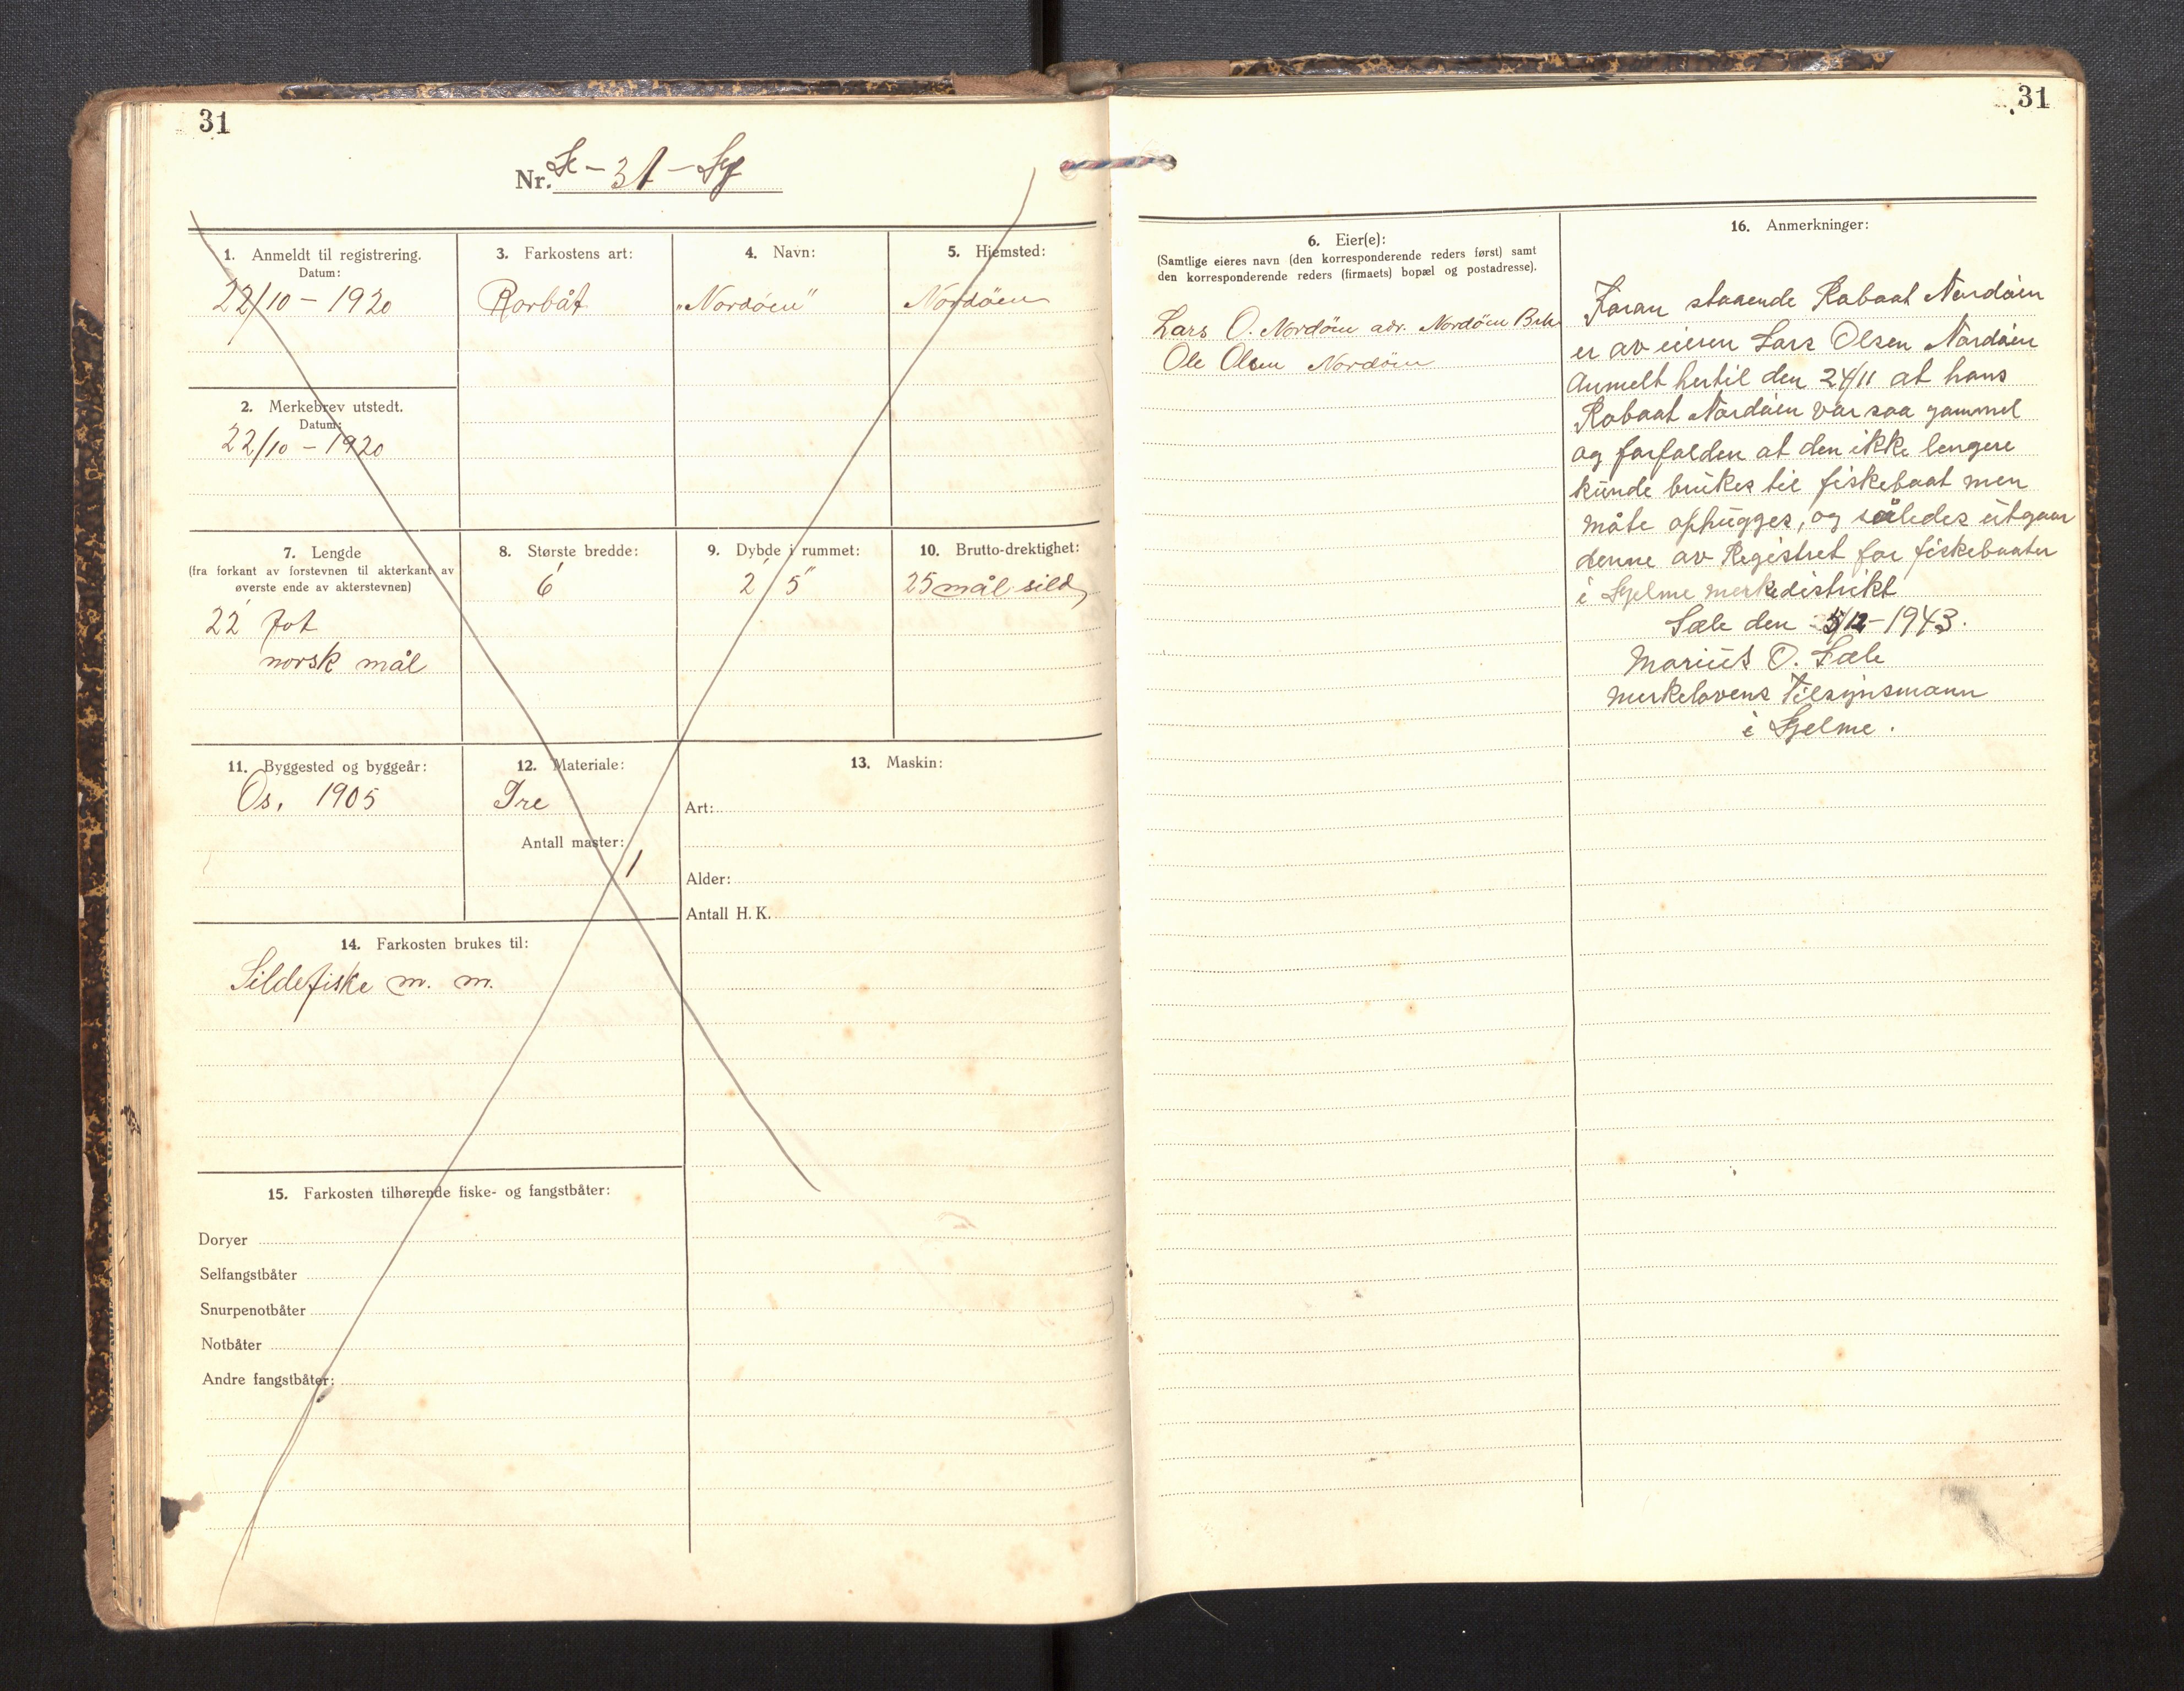 31
Nr. H-31-Hg
1. Anmeldt til registrering.
Datum:
22/10 - 1920
2. Merkebrev utstedt.
Datum:
22/10 - 1920
3. Farkostens art:
Rorbåt
4. Navn:
"Nordöen"
5. Hjemsted:
Nordöen
7. Lengde
(fra forkant av forstevnen til akterkant av
øverste ende av akterstevnen)
22' fot
norsk mål
8. Største bredde:
6'
9. Dybde i rummet:
2' 5"
10. Brutto-drektighet:
25 mål sild
11. Byggested og byggeår:
Os, 1905
12. Materiale:
Tre
Antall master:
1
13. Maskin:
Art:
Alder:
Antall H. K.
14. Farkosten brukes til:
Sildefiske m. m.
15. Farkosten tilhørende fiske- og fangstbåter:
Doryer
Selfangstbåter
Snurpenotbåter
Notbåter
Andre fangstbåter:
31
6. Eier(e):
(Samtlige eieres navn (den korresponderende reders først) samt
den korresponderende reders (firmaets) bopæl og postadresse).
Lars O. Nordöen adr. Nordöen
Ole Olsen Nordöen
16. Anmerkninger:
Foran staaende Robaat Nordöen
er av eieren Lars Olsen Nordöen
Anmelt hertil den 24/11 at hans
Robaat Nordöen var saa gammel
og forfalden at den ikke lengere
kunde brukes til fiskebaat men
måte ophugges, og således utgaar
denne av Registret for fiskebaater
i Hjelme merkedistrikt
Sæle den 5/12-1943.
Marius O. Sæle
Merkelovens Tilsynsmann
i Hjelme.